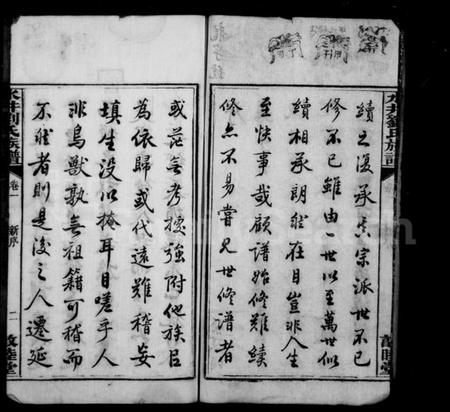 續之復承吾宗派世不已
修不已雖由一世以至萬世似
續相承朗然在目豈非人生
至快事哉顧譜始修難續
修亦不易嘗見世修譜者
或茫無考據強附他族臣
為依歸或代遠難稽妄
填生沒以掩耳目嗟乎人
非鳥獸孰無祖籍可稽而
不然者則是後之人遷延
水井劉氏族譜
卷一
新序
二
敦睦堂